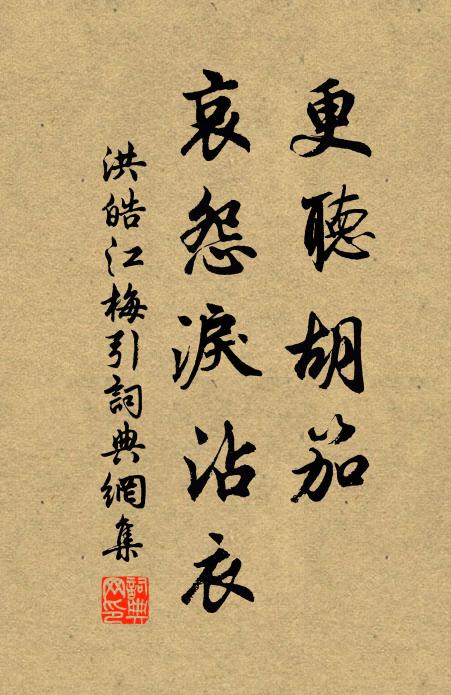 更聽胡笳
哀怨淚沾衣
洪皓江梅引詞典網集
詞典網印